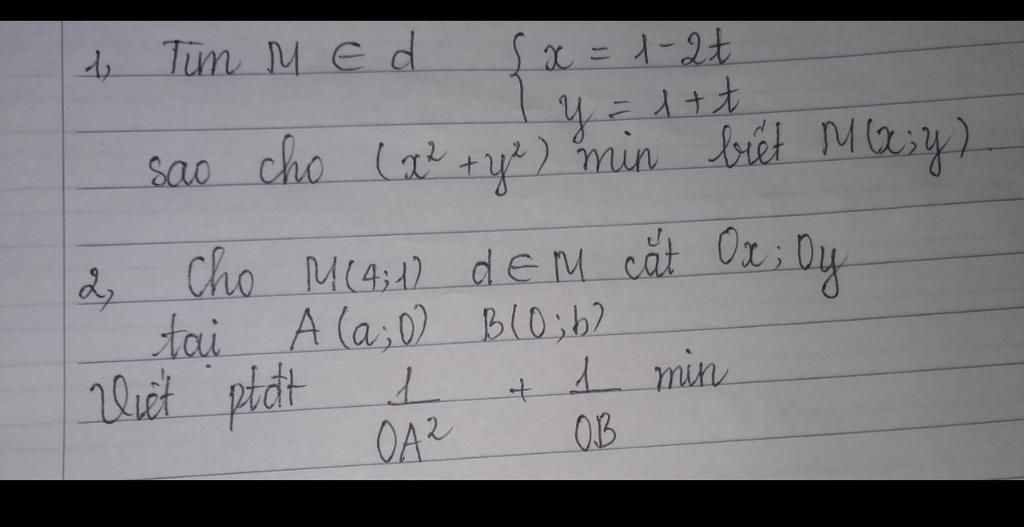 1, Tìm M ∈ d { x = 1 - 2t
y = 1 + t
sao cho (x² + y²) min biết M(x; y).
2, Cho M(4;1) d ∈ M cắt Ox; Oy
tại A (a; 0) B(0; b)
Viết ptđt 1/OA² + 1/OB min